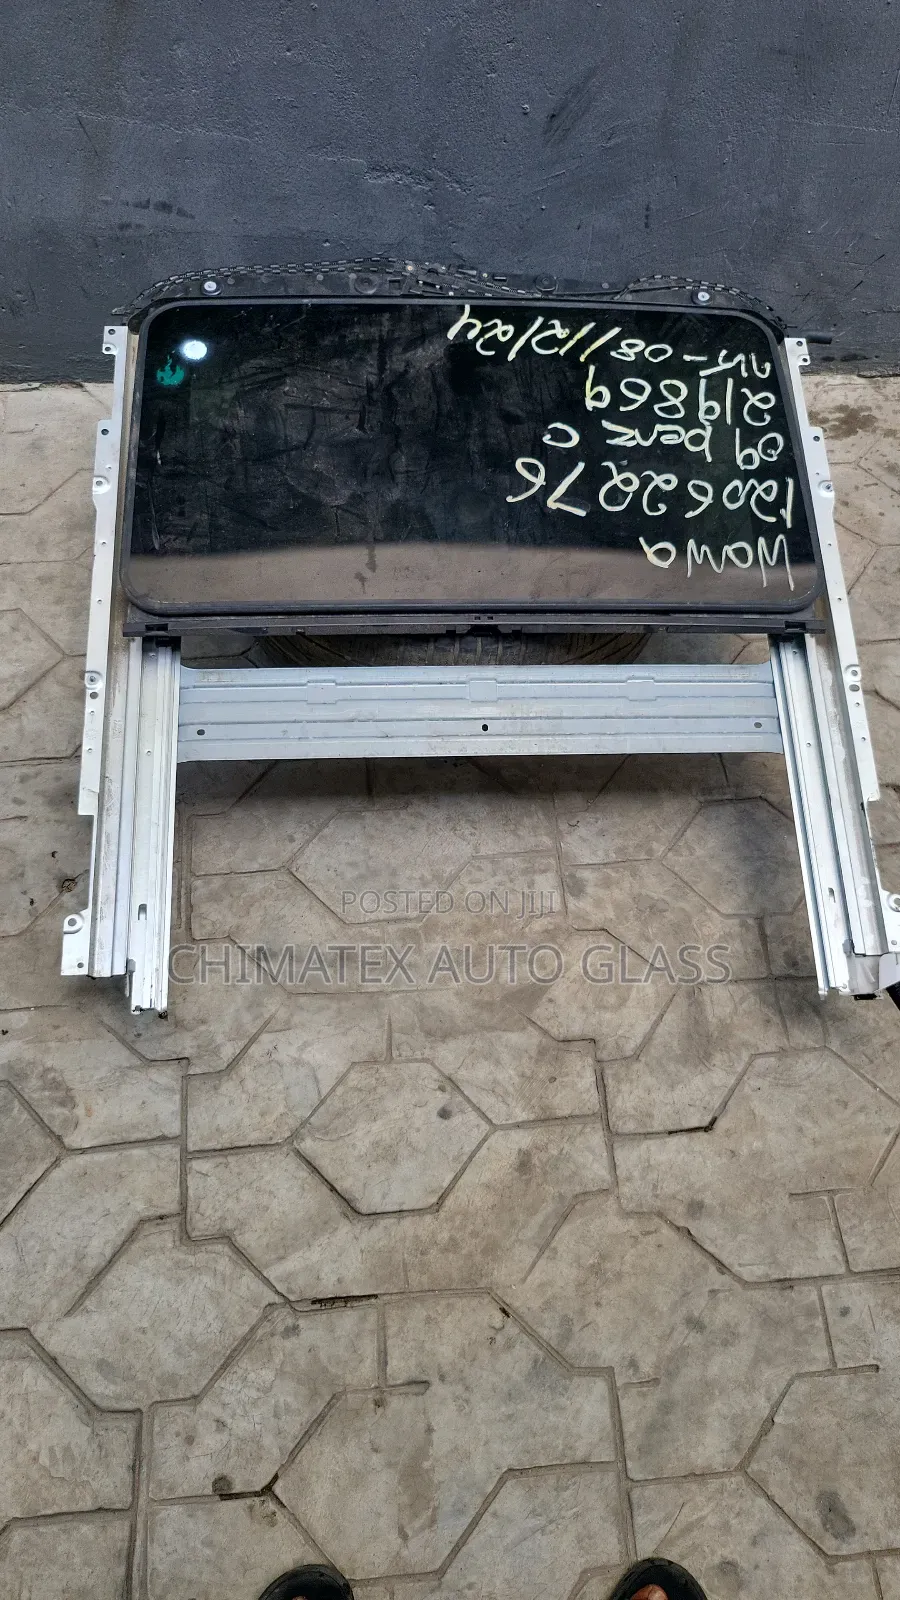 Wawa
12062276
09 benz C
219869
08/12/24
POSTED ON JIJI
CHIMATEX AUTO GLASS